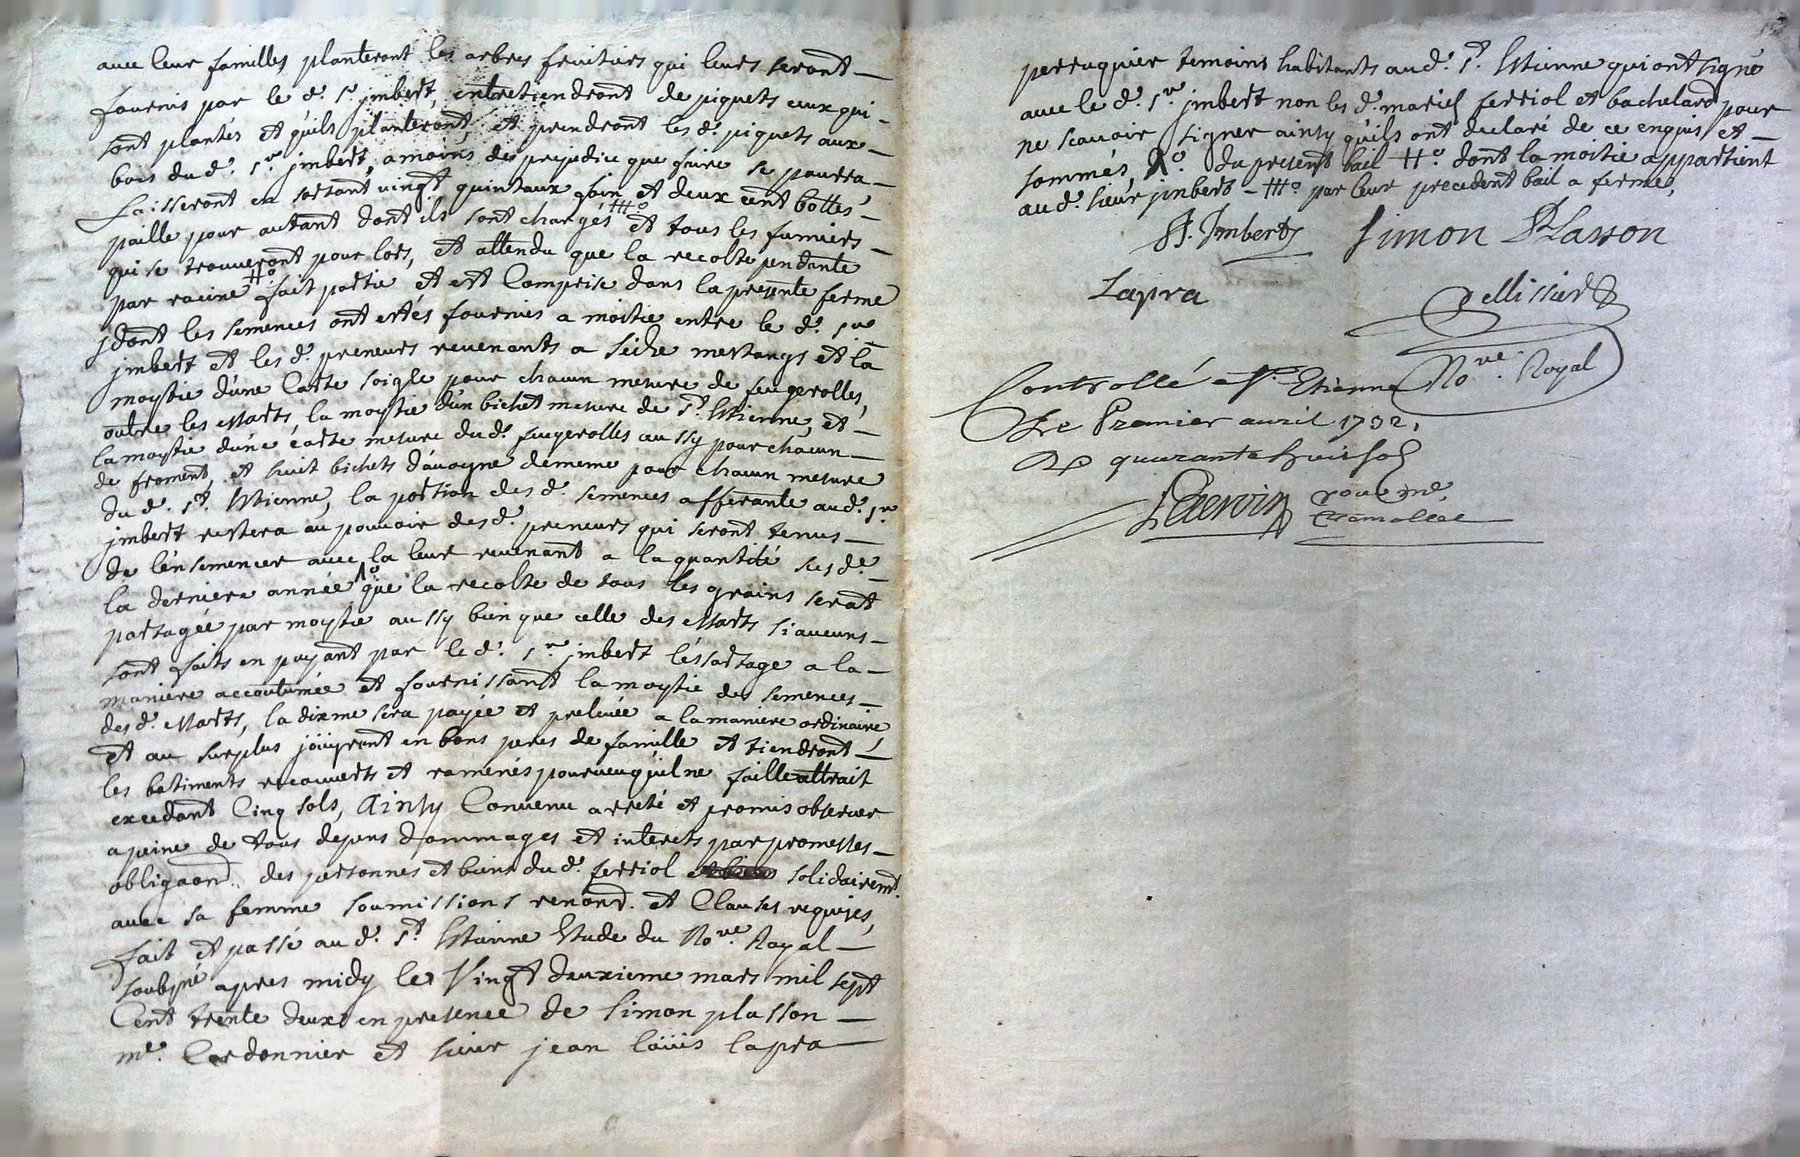 avec leur familles planteront les arbres fruitiers qui leurs seront
fournis par le d. sr jmbert, entretiendront de piquets ceux qui
sont plantés et qu'ils planteront, et prendront les d. piquets aux
bois du d. sr jmbert, a moins de prejudice que faire se pourra
Laisseront en sortant vingt quintaux foin et deux cent bottes
paille pour autant dont ils sont chargés ₶° et tous les fumiers
qui se trouveront pour lors, et attendu que la recolte pendante
par racine #° fait partie et est Comprise dans la presente ferme
dont les semences ont estés fournies a moitie entre le d. sr
jmbert et les d. preneurs revenants a seize mestangs et la
moytie d'une Carte soigle pour chacun mesure de feugerolles,
outre les essarts, la moytie d'un bichet mesure de St. Estienne, et
la moytie d'une carte mesure du d. feugerolles aussy pour chacun
de froment, et huit bichets d'avoyne de meme pour chacun mesure
du d. St. Estienne, la portion des d. semences afferante au d. sr
jmbert restera au pouvoir des d. preneurs qui seront tenus
de l'ensemencer avec la leur revenant a la quantité sus de.
la derniere année que la recolte de tous les grains serat
partagée par moytie aussy bien que celle des essarts si aucuns
sont faits en payant par le d. sr jmbert l'essartage a la
maniere accoutumée et fournissant la moytie des semences
des d. essarts, la dixme sera payée et prelevée a la maniere ordinaire
et au surplus joüyront en bons peres de famille et tiendront
les batiments recouverts et ramenés pourveu qu'il ne faille attrait
excedant Cinq sols, Ainsy Convenu arreté et promis observer
a peine de tous depens dommages et interets par promesses
obligaond. des personnes et biens du d. ferriol solidairemt.
avec sa femme soumissions renond. et Clauses requises,
fait et passé au d. St. Estienne Etude du Nore. Royal
soubné apres midy le Vingt deuxieme mars mil sept
Cent trente deux en presence de Simon plasson
me. Cordonnier et sieur jean loüis lapra
perruquier temoins habitants au d. St. Estienne qui ont signé
avec le d. sr jmbert non les d. mariés ferriol et bachelard pour
ne scavoir signer ainsy qu'ils ont declaré de ce enquis et
sommés, du present bail #° dont la moitie appartient
au d. sieur jmbert - ₶° par leur precedent bail a ferme,
Jmbert Simon Plasson
Lapra
Pellissier
Nore. Royal
Controllé a St. Etienne
Le Premier avril 1732,
quarante huit sols